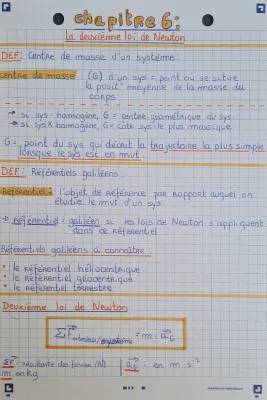 chapitre 6:
La deuxième loi de Newton
DEF: Centre de masse d'un système:
centre de masse (G) d'un sys = point où se situe
la posit° moyenne de la masse du
corps
→ si sys = homogène, G = centre géométrique du sys
→ si sys X homogène, G = côté sys le plus massique
G = point du sys qui décrit la trajectoire la plus simple
lorsque le sys est en mvt.
DEF: Référentiels galiléens.
Référentiel: l'objet de référence par rapport auquel on
étudie le mvt d'un sys.
→ Référentiel = galiléen si les lois de Newton s'appliquent
dans ce référentiel
Référentiels galiléens à connaître:
• le référentiel héliocentrique
• le référentiel géocentrique
• le référentiel terrestre
Deuxième loi de Newton
ΣF extérieur/système = m · a_G
ΣF: résultante des forces (N)
m en kg
a_G: en m·s⁻²